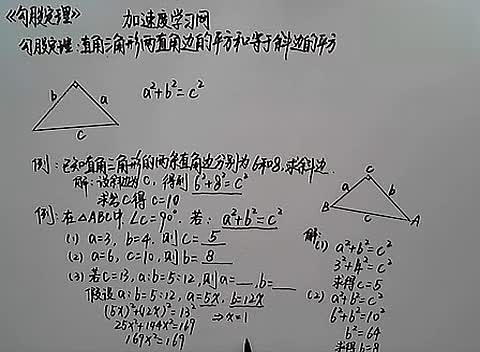 《勾股定理》 加速度学习网
勾股定理:直角三角形两直角边的平方和等于斜边的平方
b a
c
a²+b²=c²
例:已知直角三角形的两条直角边分别为6和8,求斜边.
解:设斜边为C,得到 6²+8²=C²
求出C得C=10
例:在△ABC中∠C=90°.若: a²+b²=c²
(1) a=3, b=4, 则C= 5
(2) a=6, c=10, 则b= 8
(3) 若C=13, a:b=5:12, 则a=__, b=__
假设a:b=5:12, a=5x, b=12x
(5x)²+(12x)²=13² ⇒x=1
25x²+144x²=169
169x²=169
C
a b
B c A
解:
(1) a²+b²=c²
3²+4²=c²
求得c=5
(2) a²+b²=c²
6²+b²=10²
b²=64
求得b=8